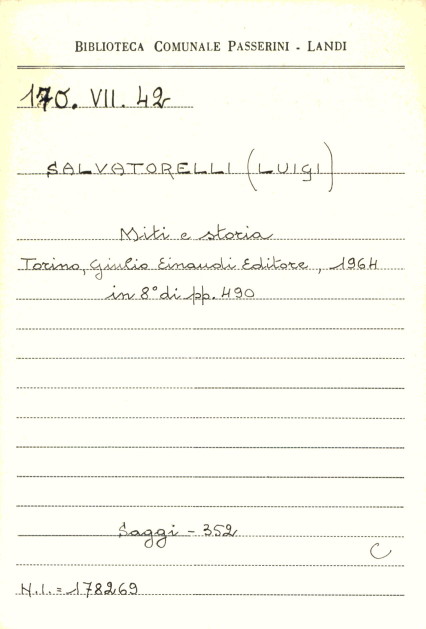 BIBLIOTECA COMUNALE PASSERINI - LANDI
170. VII. 42
SALVATORELLI (LUIGI)
Miti e storia
Torino, Giulio Einaudi Editore, 1964
in 8° di pp. 490
Saggi - 352
C
N.I. = 178269